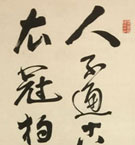 人不通古
衣冠狗